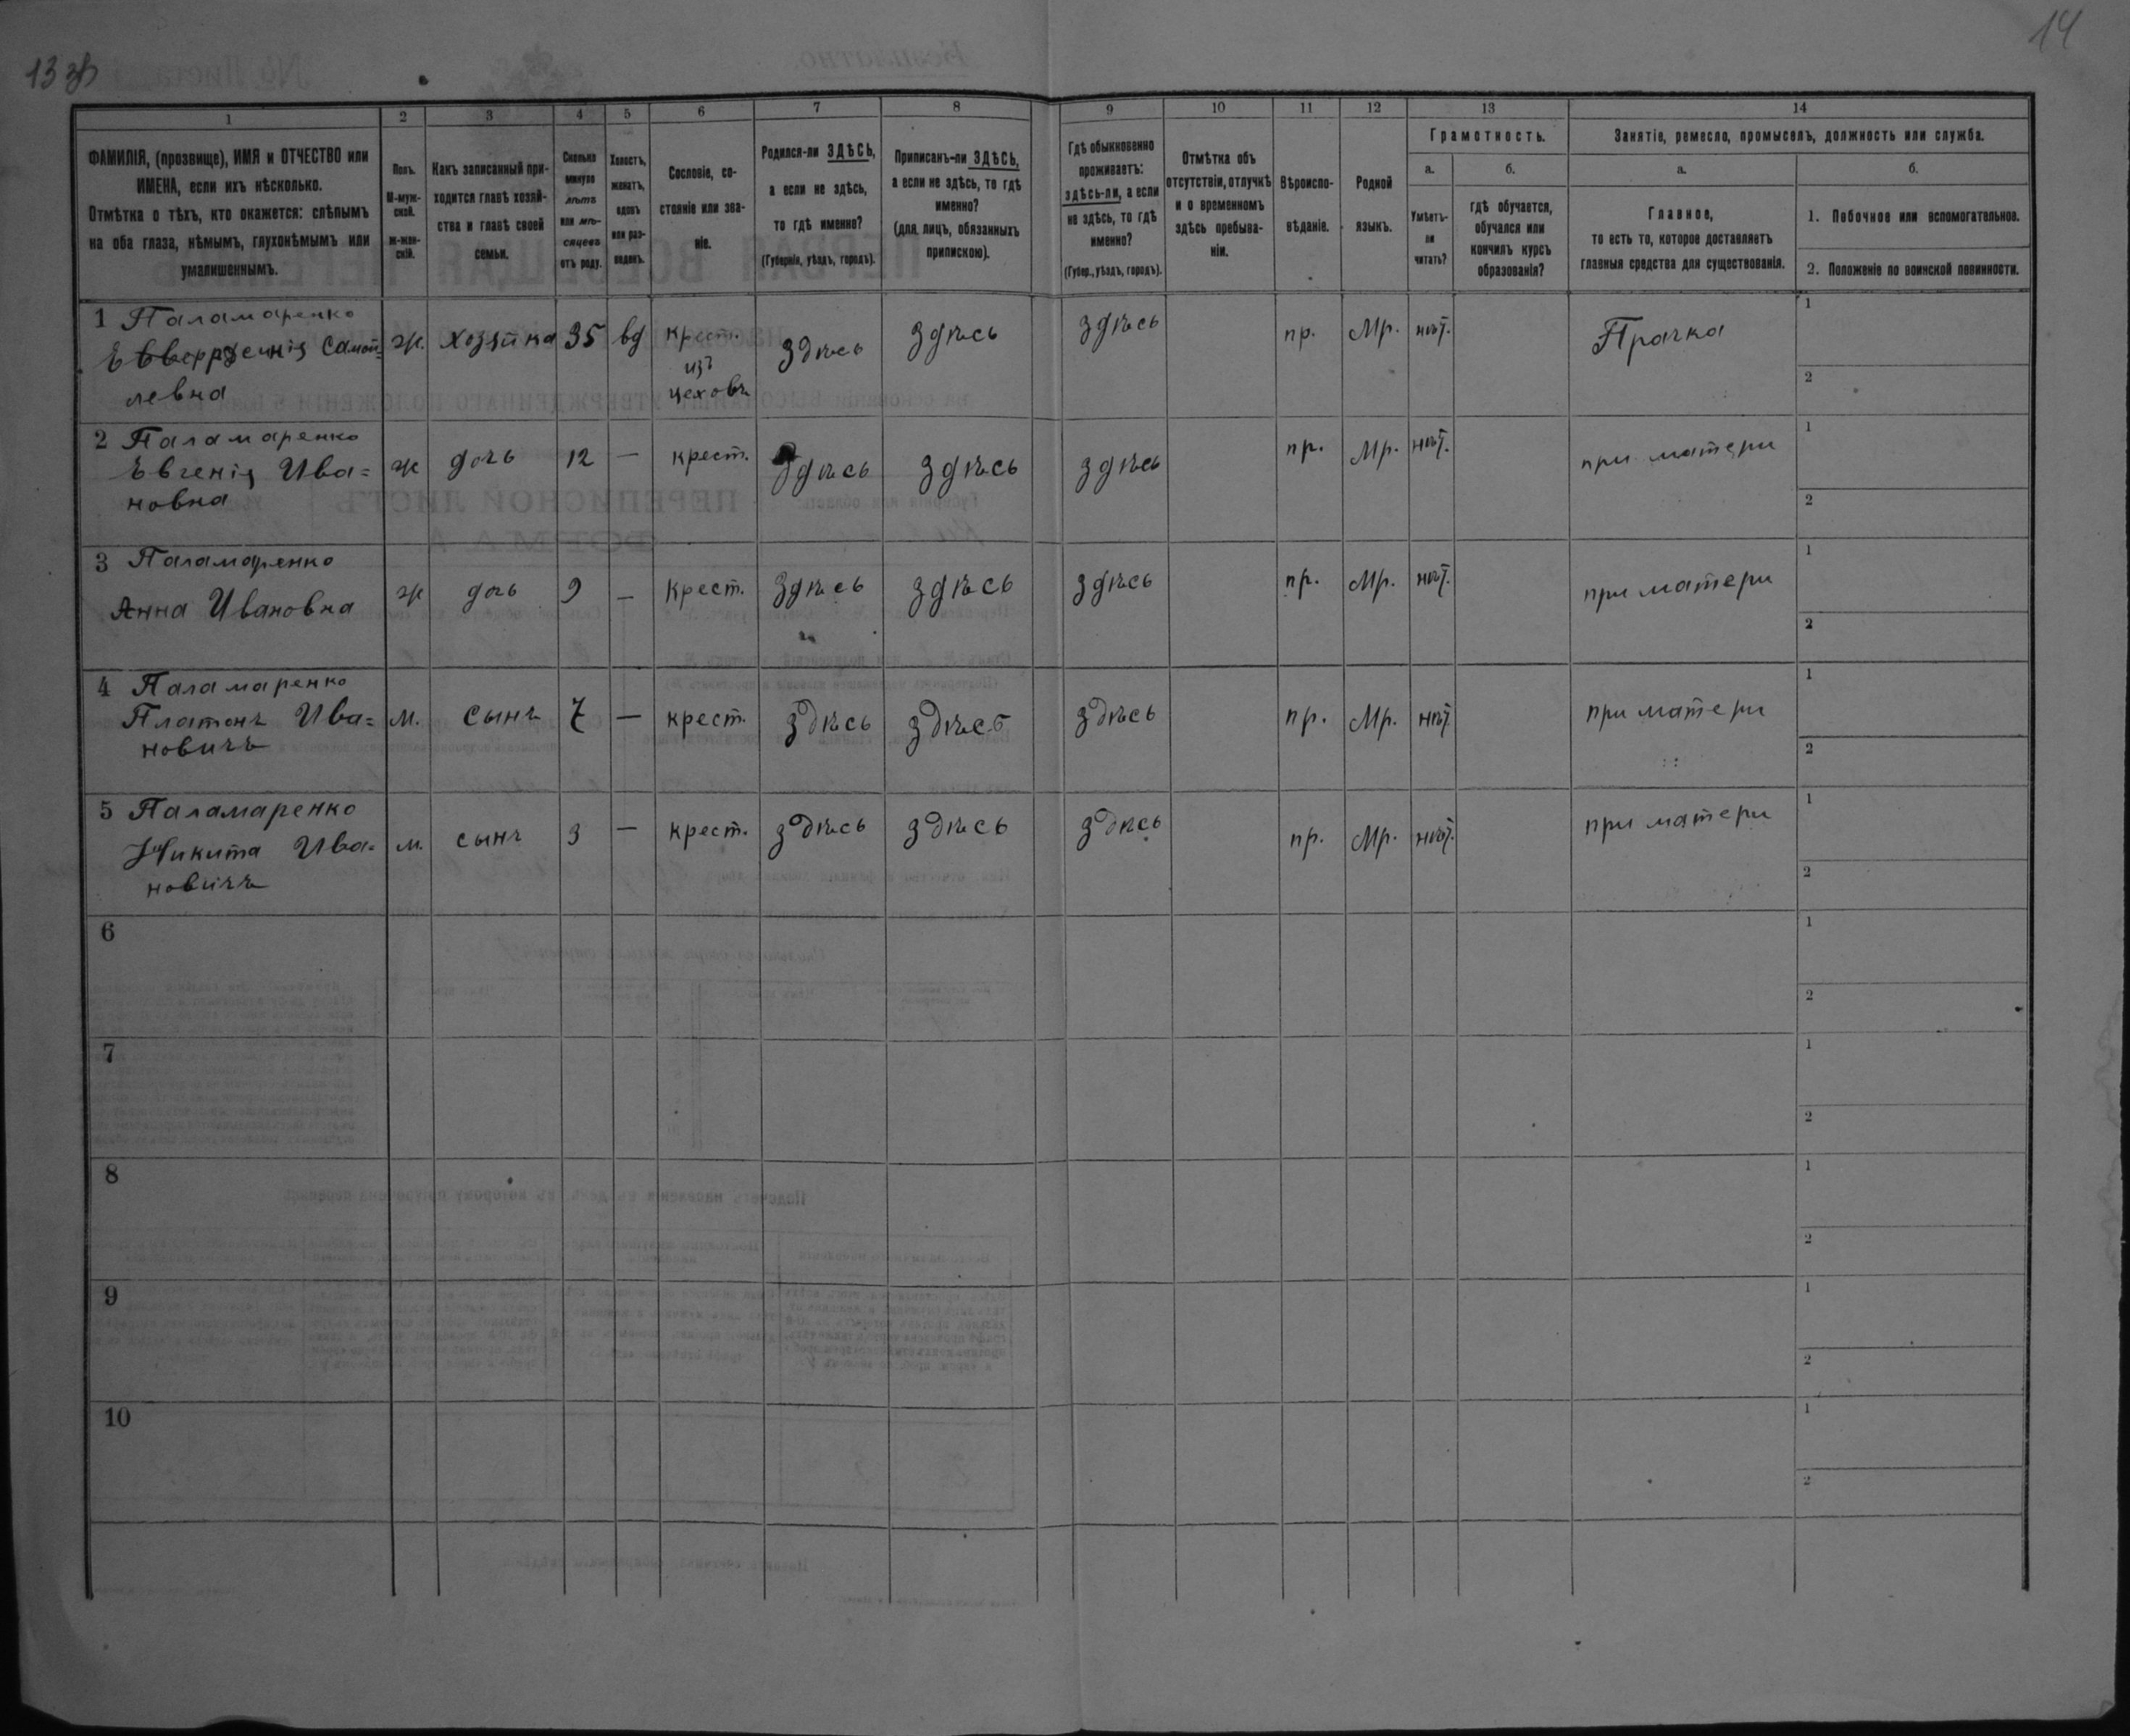 13 зв
14
1
2
3
4
5
6
7
8
9
10
11
12
13
14
ФАМИЛІЯ, (прозвище), ИМЯ и ОТЧЕСТВО или
ИМЕНА, если ихъ нѣсколько.
Отмѣтка о тѣхъ, кто окажется: слѣпымъ
на оба глаза, нѣмымъ, глухонѣмымъ или
умалишеннымъ.
Полъ.
М-муж-
ской.
ж-жен-
скій.
Какъ записанный при-
ходится главѣ хозяй-
ства и главѣ своей
семьи.
Сколько
минуло
лѣтъ
или мѣ-
сяцевъ
отъ роду.
Холостъ,
женатъ,
вдовъ
или раз-
веденъ.
Сословіе, со-
стояніе или зва-
ніе.
Родился-ли ЗДѢСЬ,
а если не здѣсь,
то гдѣ именно?
(Губернія, уѣздъ, городъ).
Приписанъ-ли ЗДѢСЬ,
а если не здѣсь, то гдѣ
именно?
(для лицъ, обязанныхъ
припискою).
Гдѣ обыкновенно
проживаетъ:
здѣсь-ли, а если
не здѣсь, то гдѣ
именно?
(Губер., уѣздъ, городъ).
Отмѣтка объ
отсутствіи, отлучкѣ
и о временномъ
здѣсь пребыва-
ніи.
Вѣроиспо-
вѣданіе.
Родной
языкъ.
Грамотность.
а.
Умѣетъ-
ли
читать?
б.
гдѣ обучается,
обучался или
кончилъ курсъ
образованія?
Занятіе, ремесло, промыселъ, должность или служба.
а.
Главное,
то есть то, которое доставляетъ
главныя средства для существованія.
б.
1. Побочное или вспомогательное.
2. Положеніе по воинской повинности.
1 Паламаренко
Самой=
левна
ж. хозяйка 35 вд крест.
изъ
цеховъ
здѣсь здѣсь здѣсь пр. Мр. нѣт. Прачка
1
2
2 Паламаренко
Евгенія Ива=
новна
ж дочь 12 — крест. здѣсь здѣсь здѣсь пр. Мр. нѣт. при матери
1
2
3 Паламаренко
Анна Ивановна
ж дочь 9 — крест. здѣсь здѣсь здѣсь пр. Мр. нѣт. при матери
1
2
4 Паламаренко
Платонъ Ива=
новичъ
м. сынъ 7 — крест. здѣсь здѣсь здѣсь пр. Мр. нѣт. при матери
1
2
5 Паламаренко
Никита Ива=
новичъ
м. сынъ 3 — крест. здѣсь здѣсь здѣсь пр. Мр. нѣт. при матери
1
2
6
1
2
7
1
2
8
1
2
9
1
2
10
1
2